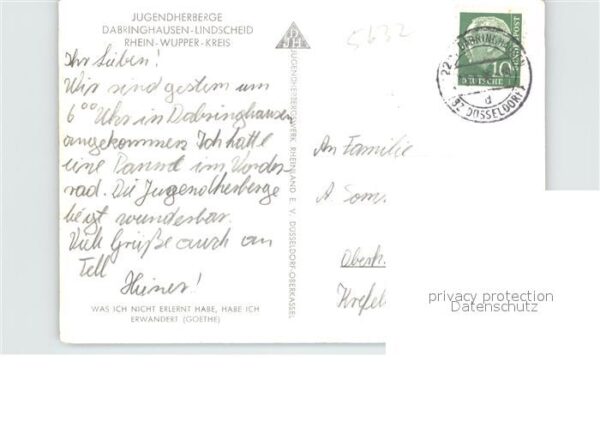 JUGENDHERBERGE
DABRINGHAUSEN-LINDSCHEID
RHEIN-WUPPER-KREIS
Ihr Lieben!
Wir sind gestern um
6⁰⁰ Uhr in Dabringhausen
angekommen. Ich hatte
eine Panne im Vorder
rad. Die Jugendherberge
liegt wunderbar.
Viele Grüße auch an
Tell
Heiner!
WAS ICH NICHT ERLERNT HABE, HABE ICH
ERWANDERT (GOETHE)
DJH
JUGENDHERBERGSWERK RHEINLAND E. V. DÜSSELDORF-OBERKASSEL
5632
10
DEUTSCHE
BUNDESPOST
DABRINGHAUSEN
d
DÜSSELDORF
An Familie
A. Som
Oberh.
Krefel
privacy protection
Datenschutz